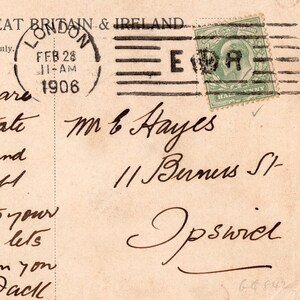 EAT BRITAIN & IRELAND
nly.
LONDON
FEB 28
11-AM
1906
E R
are
ate
nd
to your
lets
n you
Jack
Mr E Hayes
11 Berners St
Ipswich